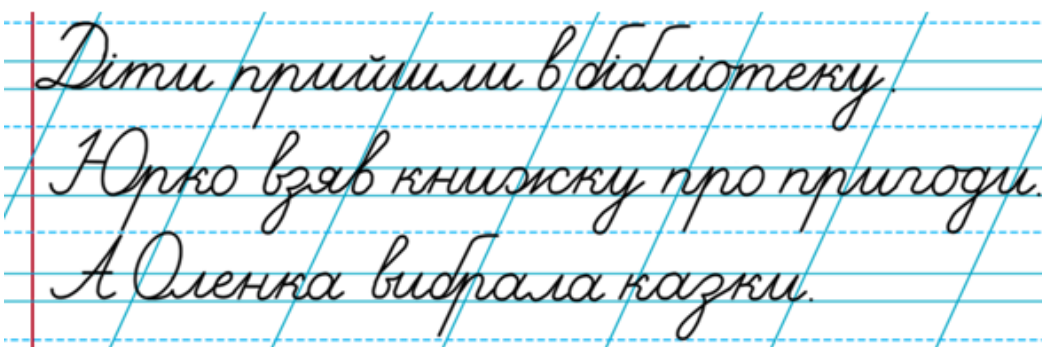 Діти прийшли в бібліотеку.
Юрко взяв книжку про пригоди.
А Оленка вибрала казки.